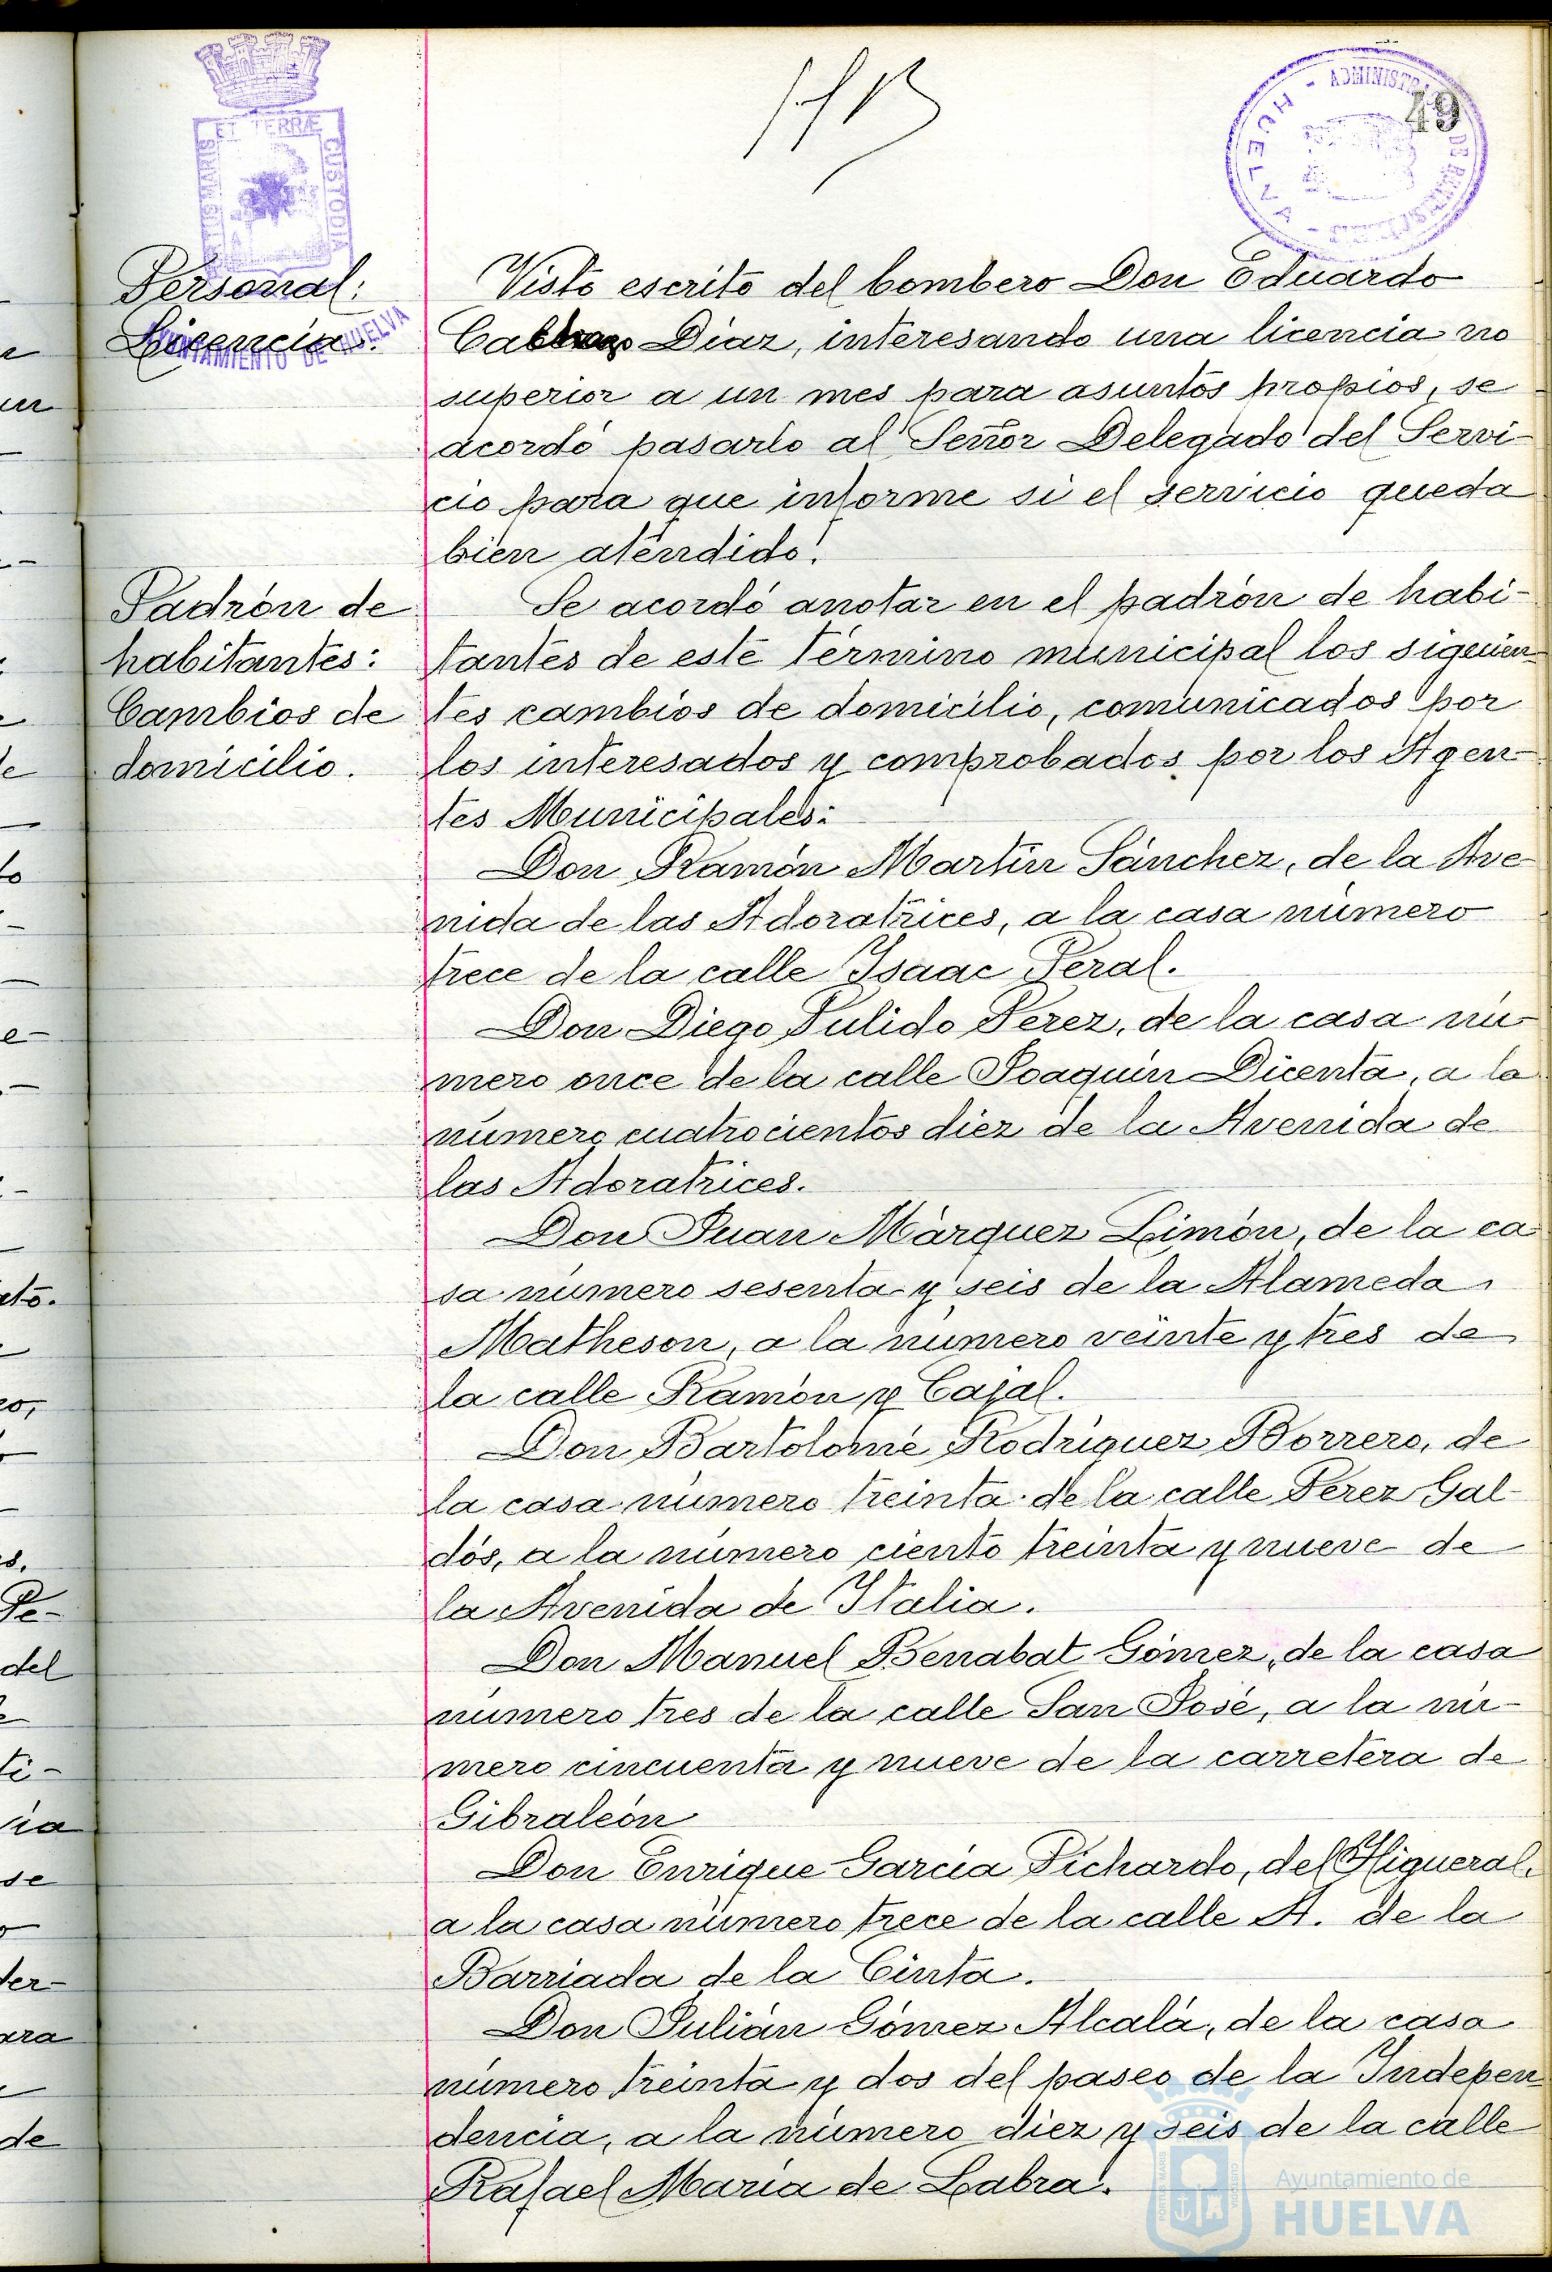 49
ET TERRÆ
CUSTODIA
MARIS
AYUNTAMIENTO DE HUELVA
HUELVA
Personal:
Licencia.
Visto escrito del bombero Don Eduardo
Diaz, interesando una licencia no
superior a un mes para asuntos propios, se
acordó pasarlo al Señor Delegado del Servi-
cio para que informe si el servicio queda
bien atendido.
Padrón de
habitantes:
Cambios de
domicilio.
Se acordó anotar en el padrón de habi-
tantes de este término municipal los siguien-
tes cambios de domicilio, comunicados por
los interesados y comprobados por los Agen-
tes Municipales:
Don Ramón Martín Sánchez, de la Ave
nida de las Adoratrices, a la casa número
trece de la calle Isaac Peral.
Don Diego Pulido Perez, de la casa nú-
mero once de la calle Joaquín Dicenta, a la
número cuatrocientos diez de la Avenida de
las Adoratrices.
Don Juan Márquez Limón, de la ca
sa número sesenta y seis de la Alameda
Matheson, a la número veinte y tres de
la calle Ramón y Cajal.
Don Bartolomé Rodríguez Borrero, de
la casa número treinta de la calle Perez Gal-
dós, a la número ciento treinta y nueve de
la Avenida de Italia.
Don Manuel Benabat Gómez, de la casa
número tres de la calle San José, a la nú-
mero cincuenta y nueve de la carretera de
Gibraleón
Don Enrique García Pichardo, del Higueral,
a la casa número trece de la calle A. de la
Barriada de la Cinta.
Don Julián Gómez Alcalá, de la casa
número treinta y dos del paseo de la Indepen
dencia, a la número diez y seis de la calle
Rafael María de Labra.
Ayuntamiento de
HUELVA